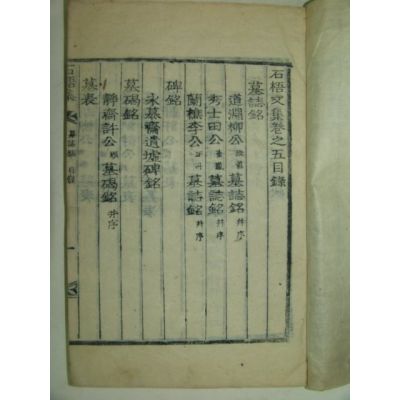 石梧文集卷之五目錄
墓誌銘
道淵柳公墓誌銘 幷序
秀士田公墓誌銘 幷序
蘭樵李公墓誌銘 幷序
碑銘
永慕齋遺墟碑銘
墓碣銘
靜齋許公墓碣銘 幷序
墓表
目錄